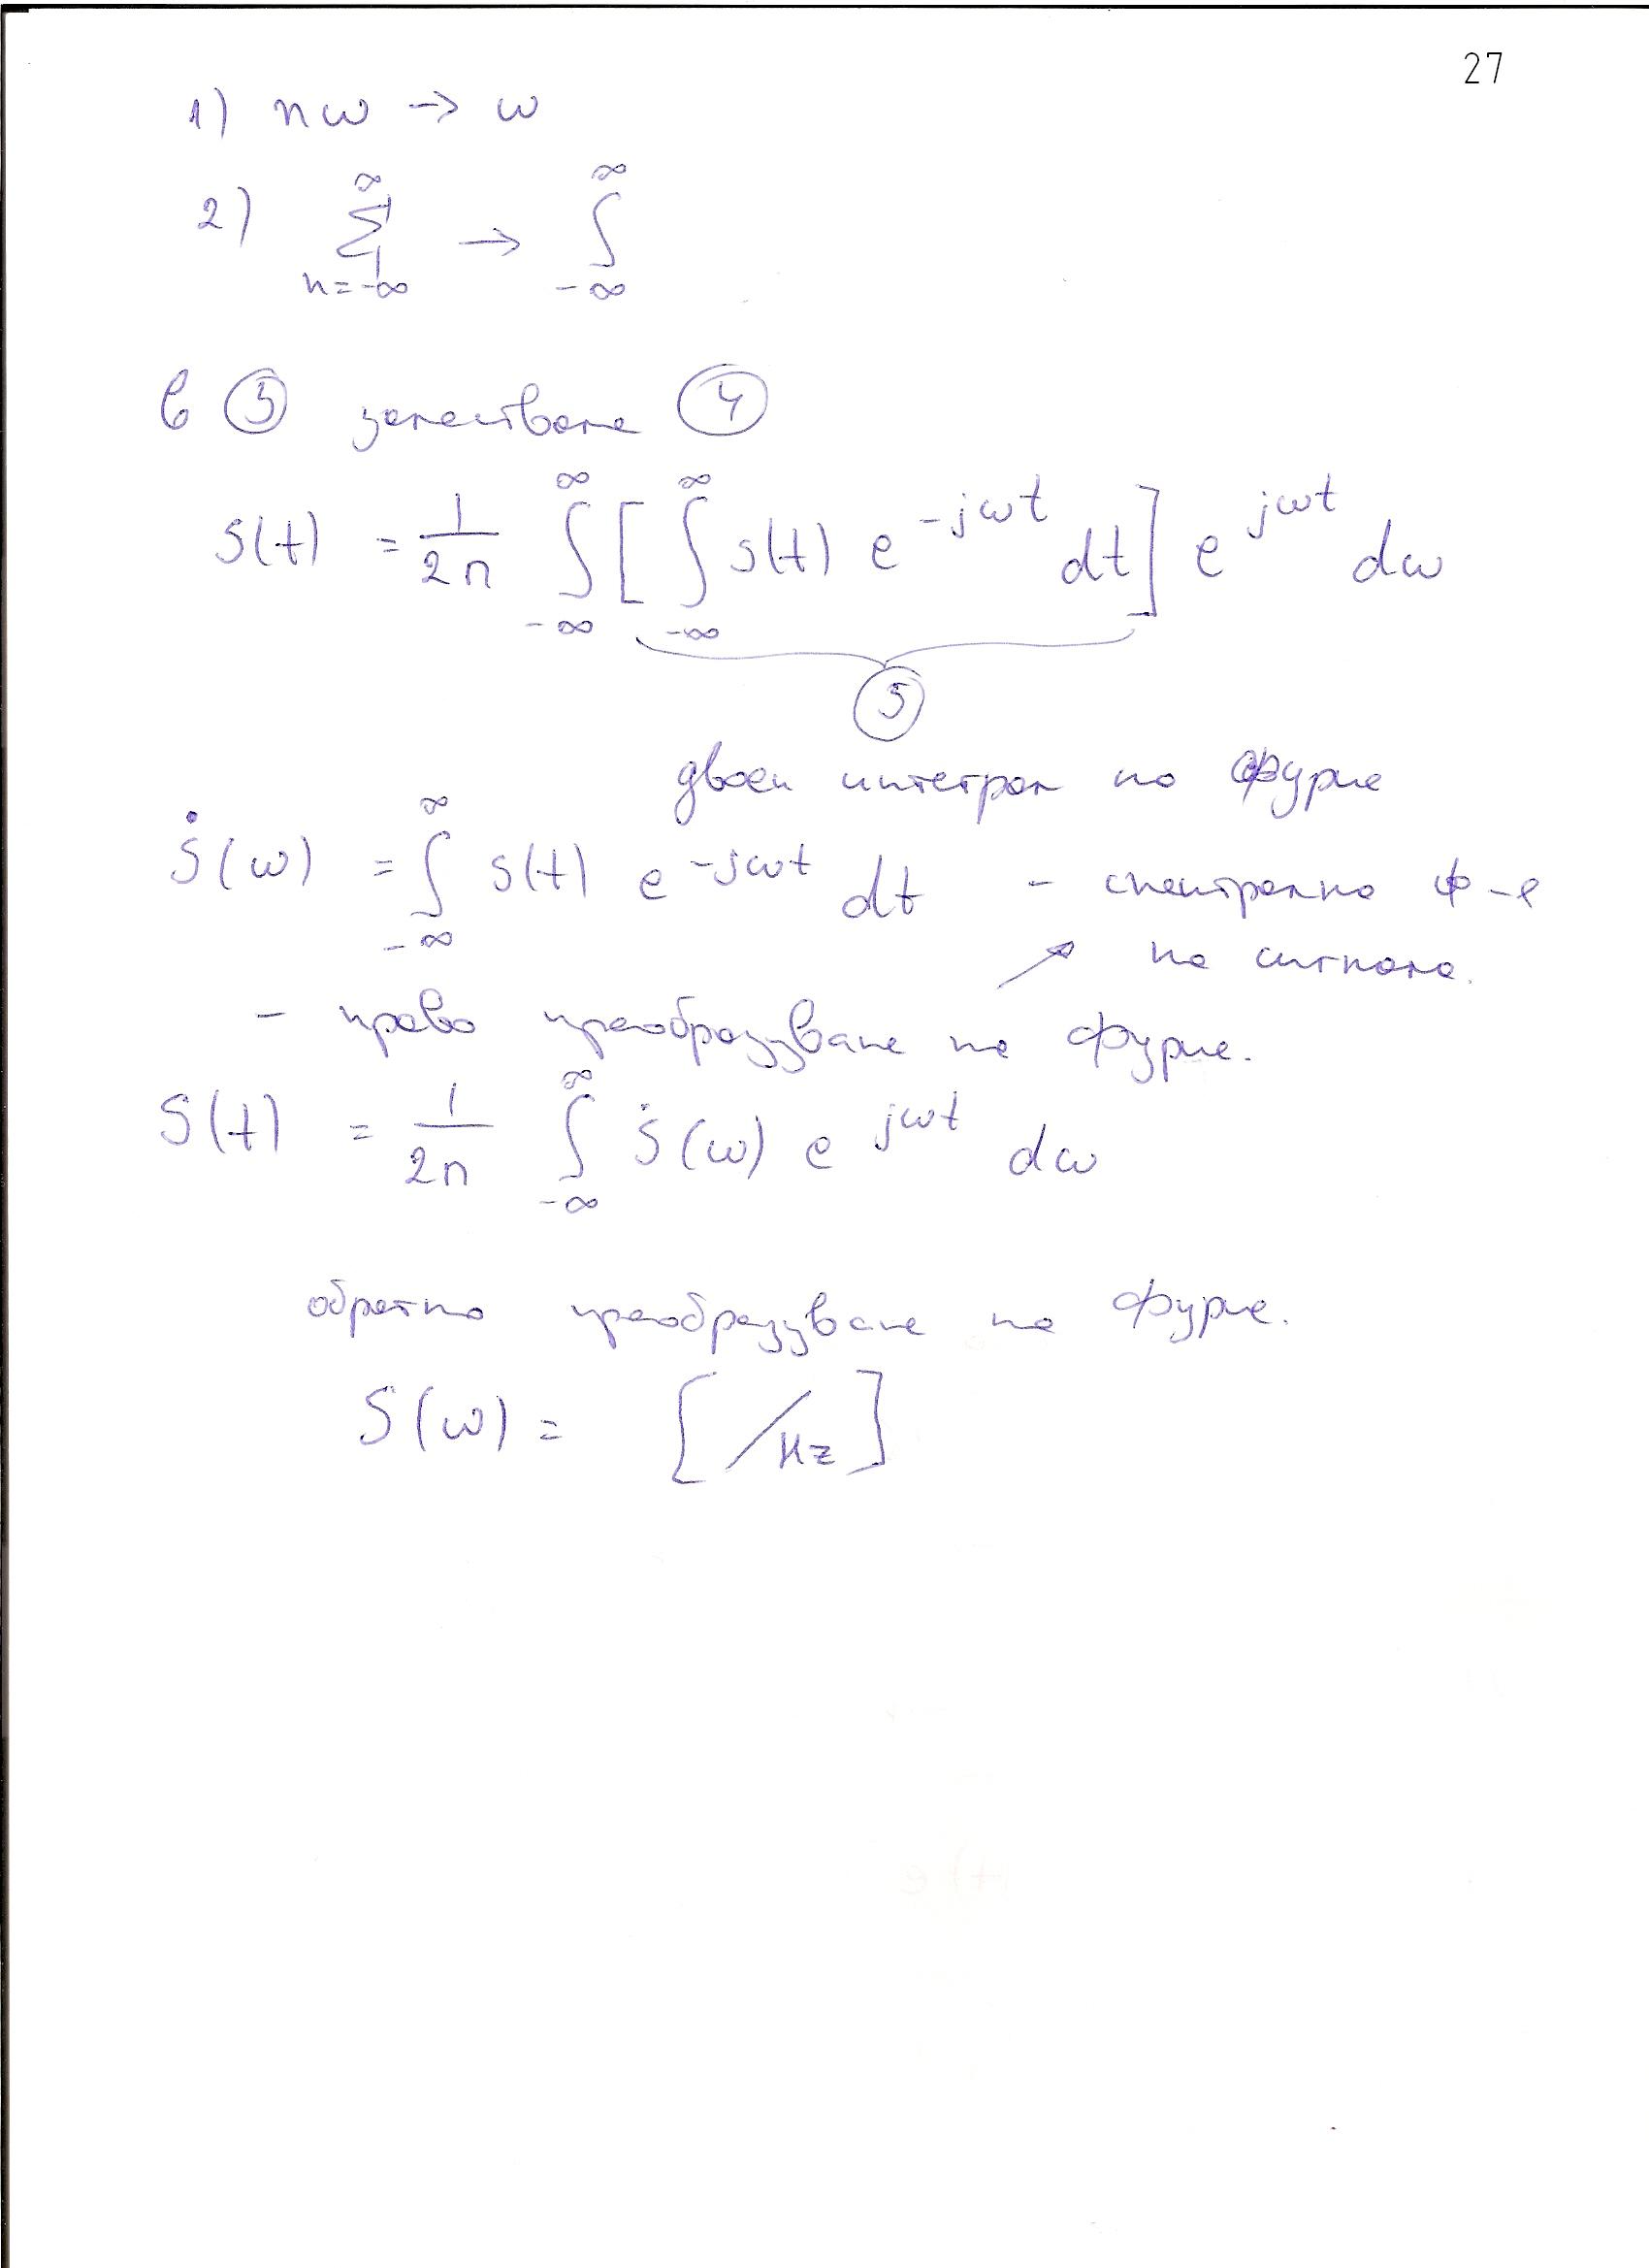 27
1) nω → ω
2) ∑ n=-∞ ∞ → ∫ -∞ ∞
в ③ заместваме ④
s(t) = 1/2π ∫ -∞ ∞ [ ∫ -∞ ∞ s(t) e^-jωt dt ] e^jωt dω
⑤
двоен интеграл по Фурие
Ṡ(ω) = ∫ -∞ ∞ s(t) e^-jωt dt - спектрална ф-я
на сигнала.
- право преобразуване на Фурие.
S(t) = 1/2π ∫ -∞ ∞ Ṡ(ω) e^jωt dω
обратно преобразуване на Фурие.
S(ω) = [ /Hz ]